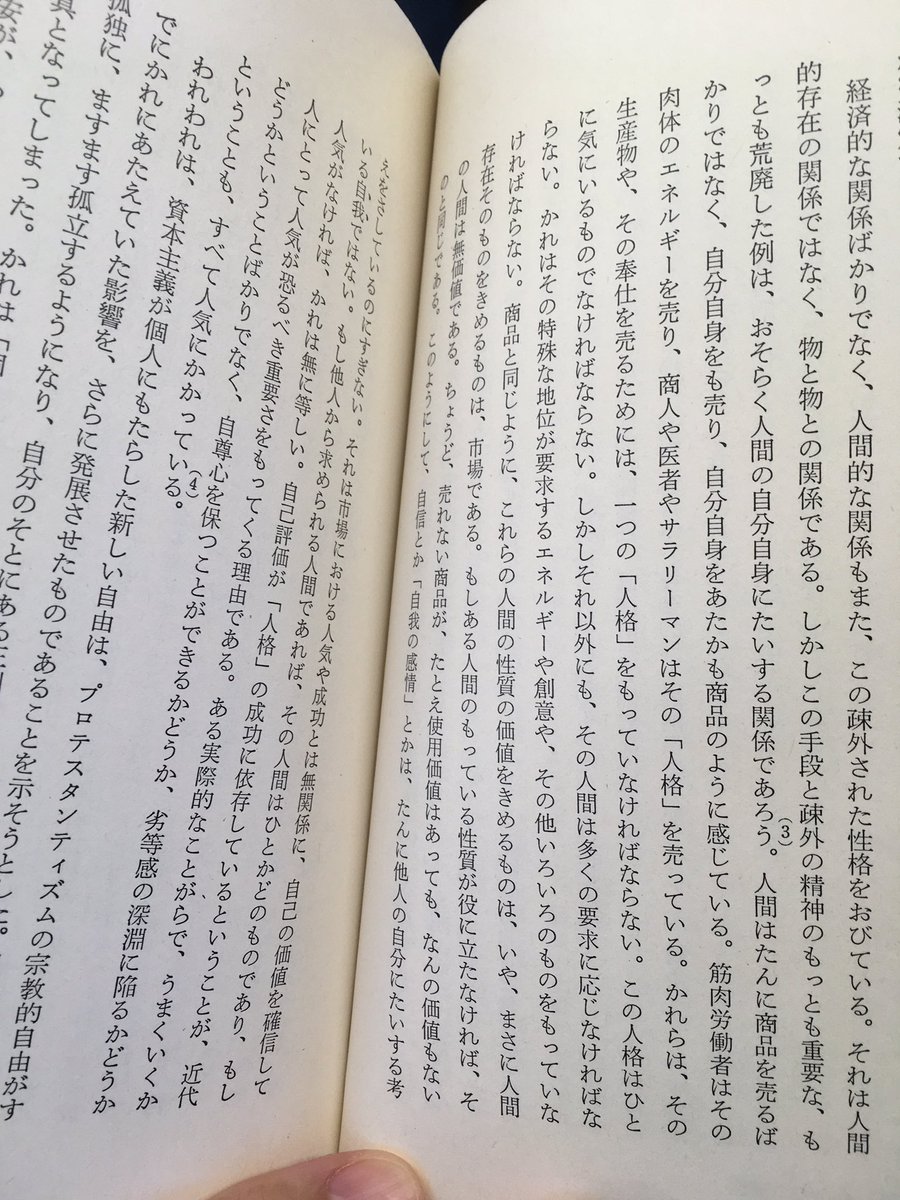 経済的な関係ばかりでなく、人間的な関係もまた、この疎外された性格をおびている。それは人間
的存在の関係ではなく、物と物との関係である。しかしこの手段と疎外の精神のもっとも重要な、も
っとも荒廃した例は、おそらく人間の自分自身にたいする関係であろう。(3)人間はたんに商品を売るば
かりではなく、自分自身をも売り、自分自身をあたかも商品のように感じている。筋肉労働者はその
肉体のエネルギーを売り、商人や医者やサラリーマンはその「人格」を売っている。かれらは、その
生産物や、その奉仕を売るためには、一つの「人格」をもっていなければならない。この人格はひと
に気にいるものでなければならない。しかしそれ以外にも、その人間は多くの要求に応じなければな
らない。かれはその特殊な地位が要求するエネルギーや創意や、その他いろいろのものをもっていな
ければならない。商品と同じように、これらの人間の性質の価値をきめるものは、いや、まさに人間
存在そのものをきめるものは、市場である。もしある人間のもっている性質が役に立たなければ、そ
の人間は無価値である。ちょうど、売れない商品が、たとえ使用価値はあっても、なんの価値もない
のと同じである。このようにして、自信とか「自我の感情」とかは、たんに他人の自分にたいする考
えをさしているのにすぎない。それは市場における人気や成功とは無関係に、自己の価値を確信して
いる自我ではない。もし他人から求められる人間であれば、その人間はひとかどのものであり、もし
人気がなければ、かれは無に等しい。自己評価が「人格」の成功に依存しているということが、近代
人にとって人気が恐るべき重要さをもってくる理由である。ある実際的なことがらで、うまくいくか
どうかということばかりでなく、自尊心を保つことができるかどうか、劣等感の深淵に陥るかどうか
ということも、すべて人気にかかっている。(4)
われわれは、資本主義が個人にもたらした新しい自由は、プロテスタンティズムの宗教的自由がす
でにかれにあたえていた影響を、さらに発展させたものであることを示そうとした。
孤独に、ますます孤立するようになり、自分のそとにある
となってしまった。かれは